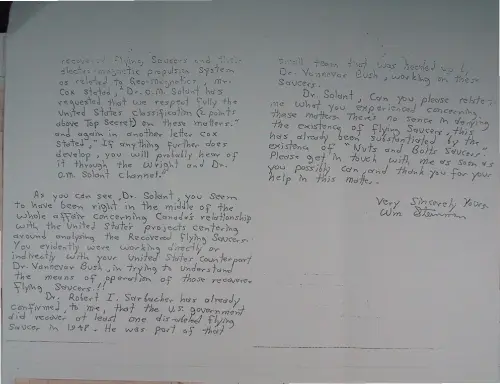 recovered Flying Saucers and their
electro-magnetic propulsion system
as related to Geo-magnetics, Mr.
Cox stated, "Dr. O.M. Solant has
requested that we respect fully the
United States Classification (2 points
above Top Secret) on these matters."
and again in another letter Cox
stated, "If anything further does
develop, you will probally hear of
it through the Wright and Dr.
O.M. Solant channel."
As you can see, Dr. Solant, you seem
to have been right in the middle of the
whole affair concerning Canada's relationship
with the United States projects centering
around analyzing the Recovered Flying Saucers.
You evidently were working directly or
indirectly with your United States Counterpart
Dr. Vannevar Bush, in trying to understand
the means of operation of those recovered
Flying Saucers!!
Dr. Robert I. Sarbacher has already
confirmed, to me, that the U.S. government
did recover at least one dis-abled flying
saucer in 1948. He was part of that
small team that was headed up by
Dr. Vannevar Bush, working on these
Saucers.
Dr. Solant, Can you please relate to
me what you experienced concerning
these matters. There's no sense in denying
the existence of flying Saucers, this
has already been substantiated by the
existence of "Nuts and Bolts Saucers."
Please get in touch with me as soon as
you possibly can, and thank you for your
help in this matter.
Very Sincerely Yours,
Wm